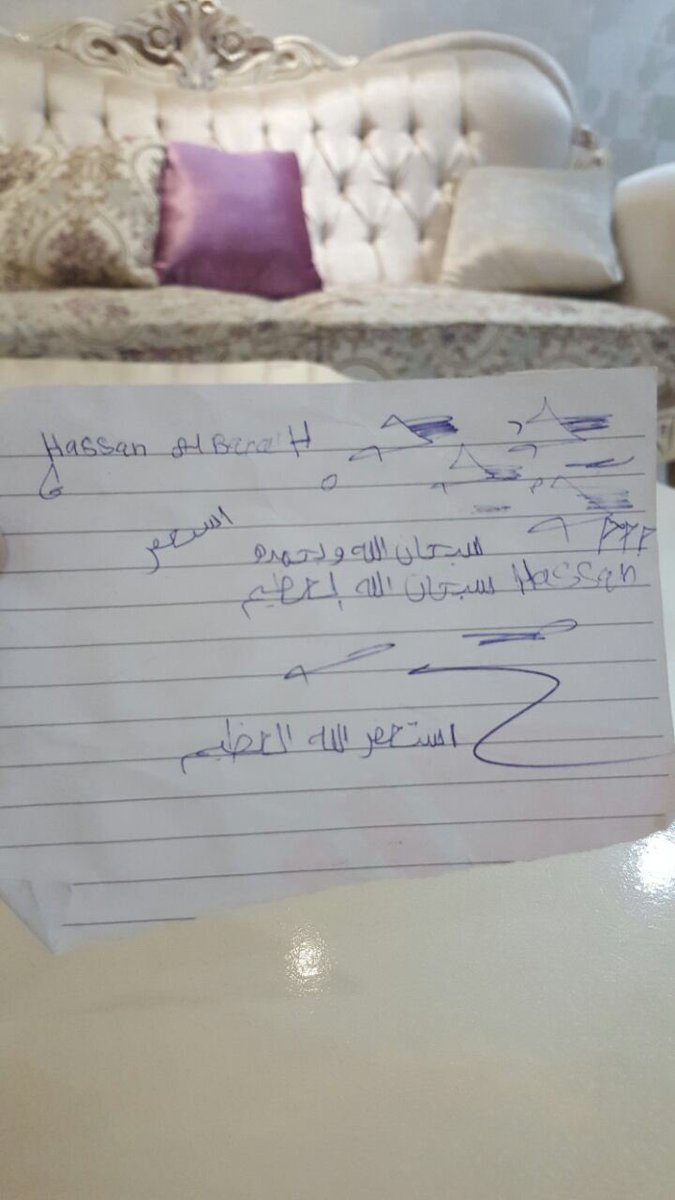 Hassan Al Bana H
استغفر
سبحان الله وبحمده
سبحان الله العظيم Hassan
استغفر الله العظيم